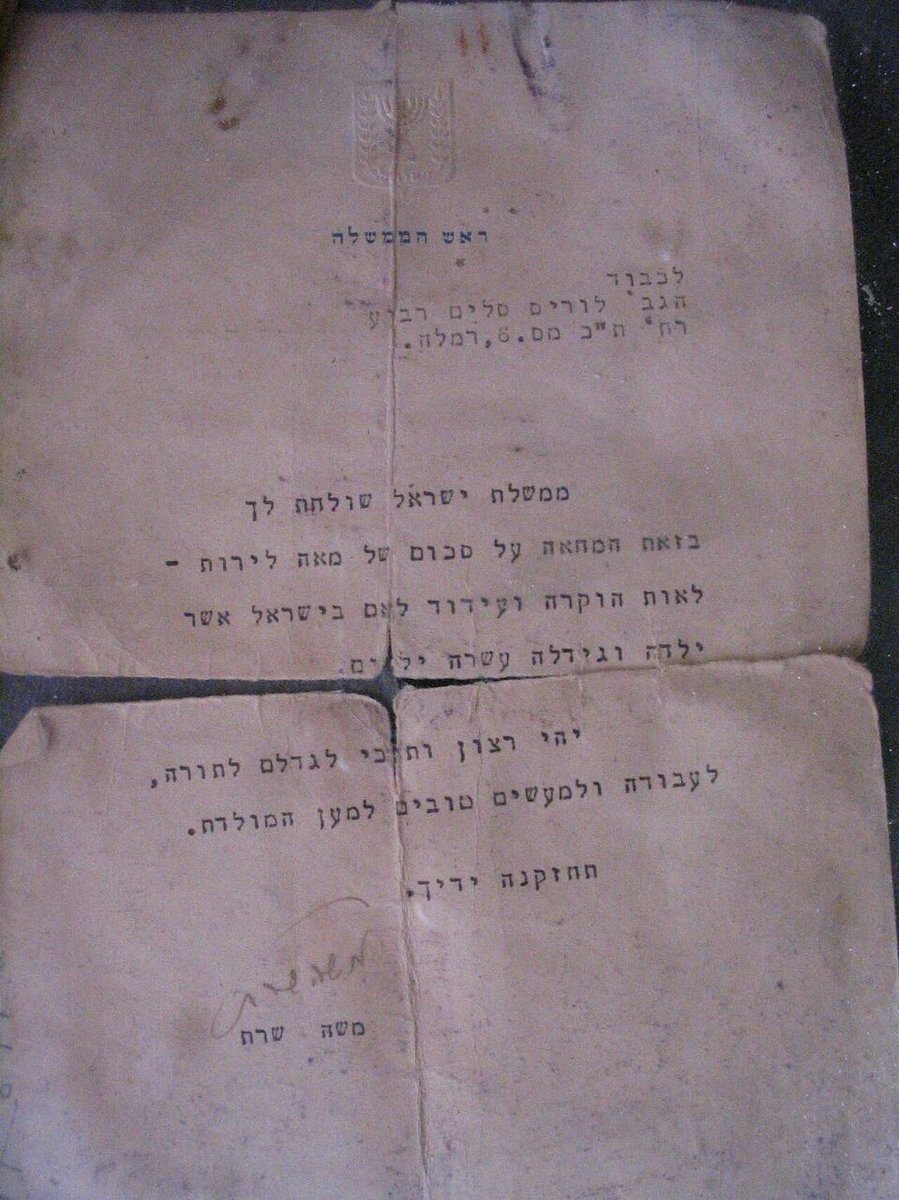 ראש הממשלה
לכבוד
הגב' לורים סלים רביע
רח' ת"כ מס.6, רמלה.
ממשלת ישראל שולחת לך
בזאת המחאה על סכום של מאה לירות -
לאות הוקרה ועידוד לאם בישראל אשר
ילדה וגידלה עשרה ילדים.
יהי רצון ותזכי לגדלם לתורה,
לעבודה ולמעשים טובים למען המולדת.
תחזקנה ידיך.
משה שרת
משה שרת